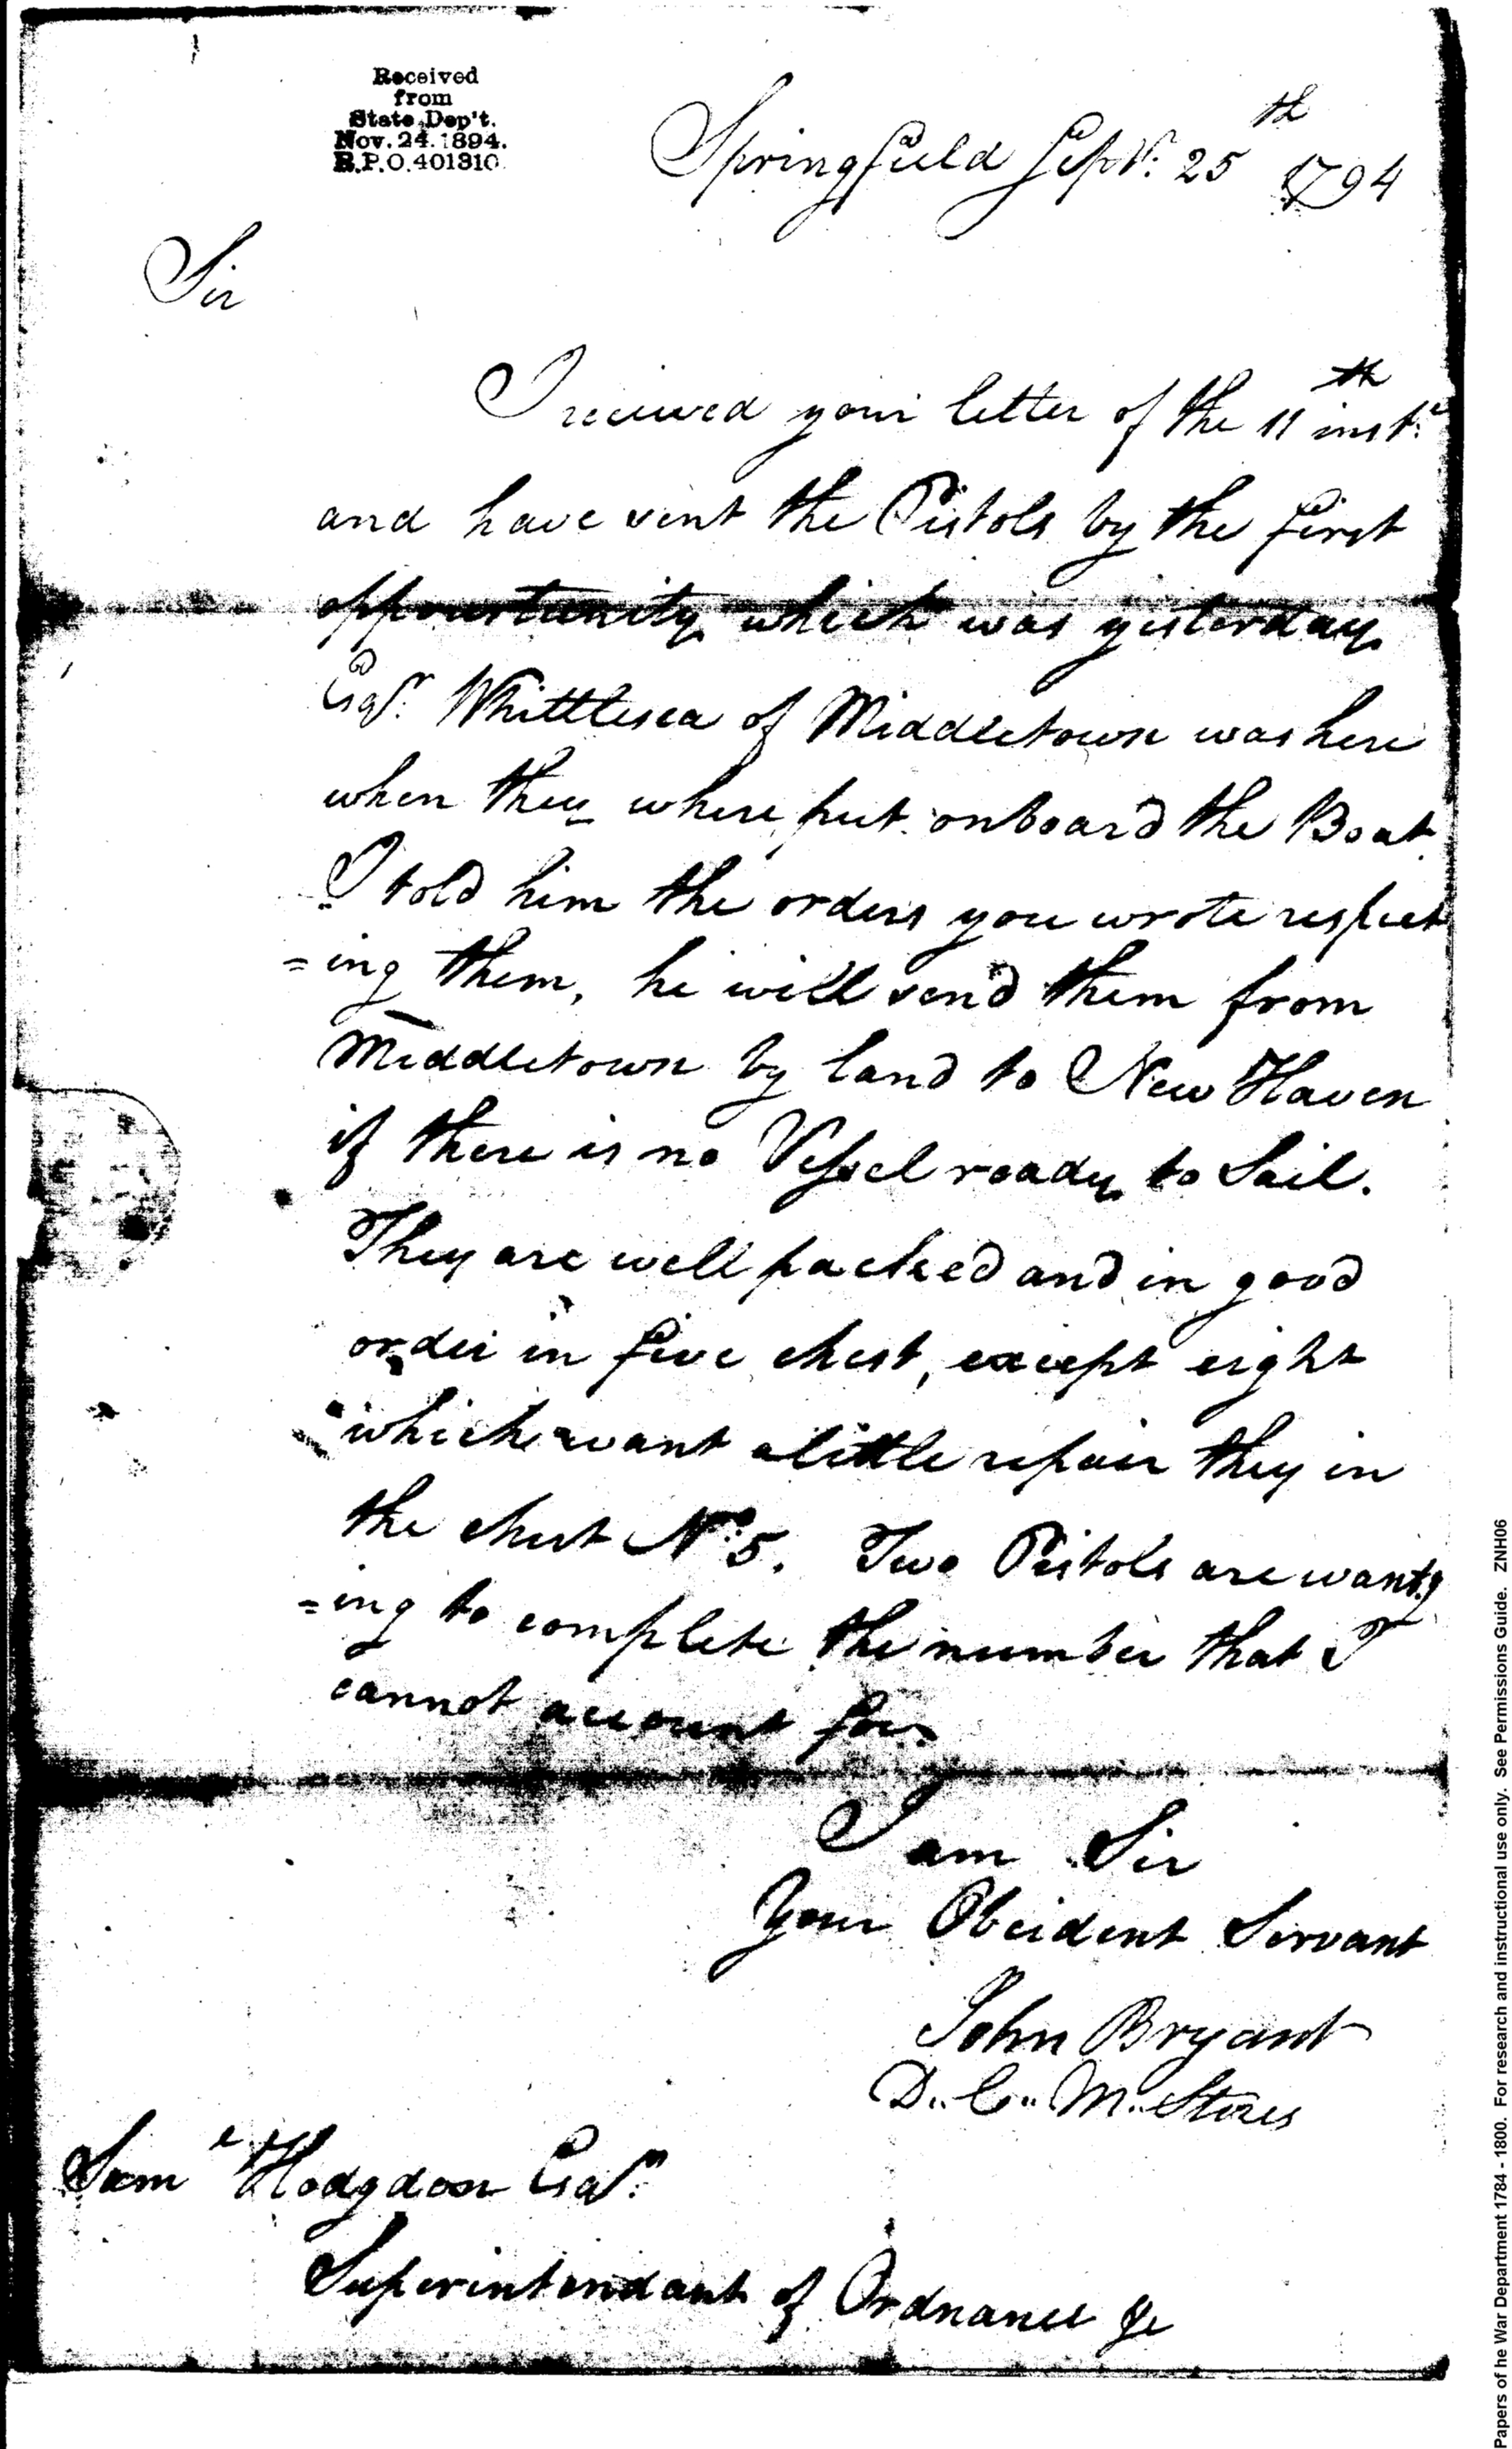 Received
from
State Dep't.
Nov. 24. 1894.
R.P.O. 401310
Springfield Sepr. 25th 1794
Sir
I received your letter of the 11th inst.
and have sent the Pistols by the first
oppourtunity which was yesterday
Esqr. Whittlesea of Middletown was here
when they where put onboard the Boat
I told him the orders you wrote respect
=ing them, he will send them from
Middletown by land to New Haven
if there is no Vessel ready to Sail.
They are well packed and in good
order in five chest, except eight
which want a little repair they in
the chest No. 5. Two Pistols are want
=ing to complete the number that I
cannot account for
I am Sir
Your Obeident Servant
John Bryant
D.. C.. M. Stores
Saml Hodgdon Esqr.
Superintendant of Ordnance &c
Papers of he War Department 1784 - 1800. For research and instructional use only. See Permissions Guide. ZNH06